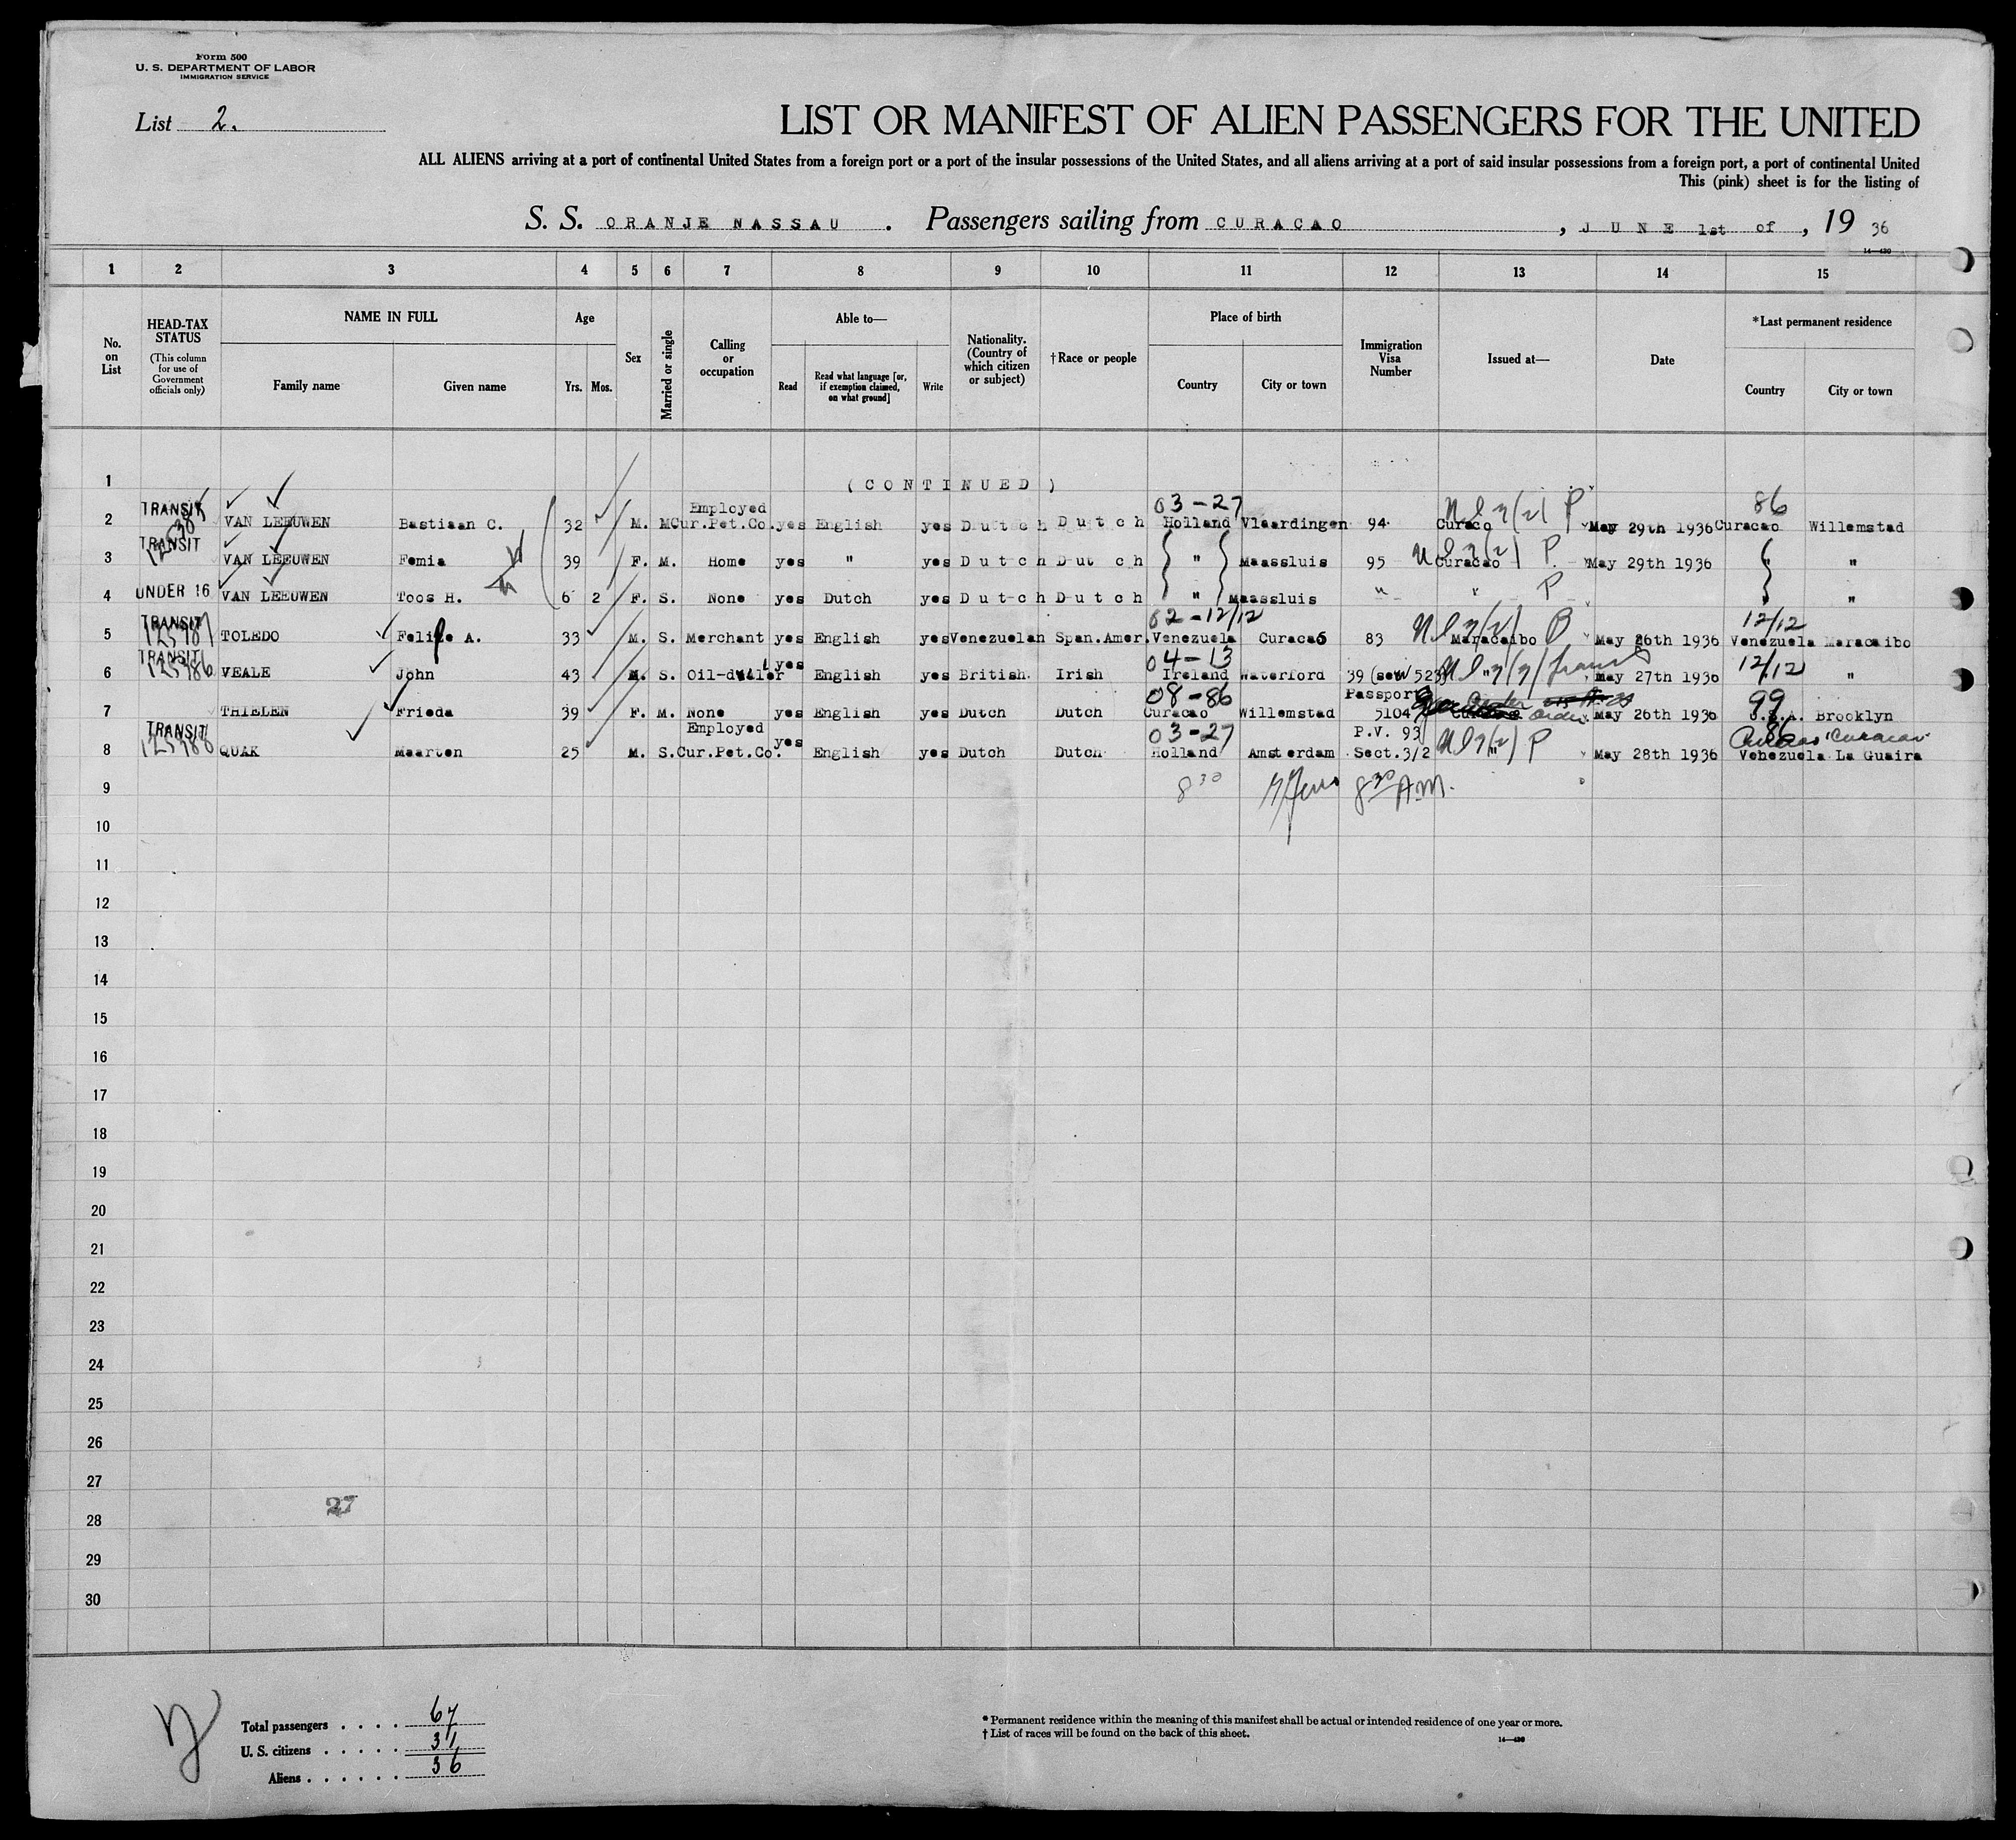 Form 500
U. S. DEPARTMENT OF LABOR
IMMIGRATION SERVICE
List 2.
LIST OR MANIFEST OF ALIEN PASSENGERS FOR THE UNITED
ALL ALIENS arriving at a port of continental United States from a foreign port or a port of the insular possessions of the United States, and all aliens arriving at a port of said insular possessions from a foreign port, a port of continental United
This (pink) sheet is for the listing of
S. S. ORANJE NASSAU . Passengers sailing from CURACAO , JUNE 1st of , 19 36
14—430
1 2 3 4 5 6 7 8 9 10 11 12 13 14 15
No. on List
HEAD-TAX STATUS
(This column for use of Government officials only)
NAME IN FULL
Family name Given name
Age
Yrs. Mos.
Sex
Married or single
Calling or occupation
Able to—
Read
Read what language [or, if exemption claimed, on what ground]
Write
Nationality. (Country of which citizen or subject)
†Race or people
Place of birth
Country City or town
Immigration Visa Number
Issued at—
Date
*Last permanent residence
Country City or town
1 (CONTINUED)
TRANSIT Employed 03-27 86
2 VAN LEEUWEN Bastiaan C. 32 M. M Cur.Pet.Co. yes English yes Dutch Dutch Holland Vlaardingen 94 Curaco P May 29th 1936 Curacao Willemstad
TRANSIT
3 VAN LEEUWEN Femia 39 F. M. Home yes " yes Dutch Dutch " Maassluis 95 Curacao P. May 29th 1936 " "
4 UNDER 16 VAN LEEUWEN Toos H. 6 2 F. S. None yes Dutch yes Dutch Dutch " Maassluis " " P " "
TRANSIT 02-12/12 12/12
5 125987 TOLEDO Felipe A. 33 M. S. Merchant yes English yes Venezuelan Span.Amer. Venezuela Curacao 83 Maracaibo May 26th 1936 Venezuela Maracaibo
TRANSIT yes 04-13 12/12
6 125986 VEALE John 43 M. S. Oil-driller English yes British Irish Ireland Waterford 39 " May 27th 1936 "
08-86 Passport 99
7 THIELEN Frieda 39 F. M. None yes English yes Dutch Dutch Curacao Willemstad 5104 May 26th 1936 U.S.A. Brooklyn
TRANSIT Employed yes 03-27 P.V. 93 86 Curacao Curacao
8 125988 QUAK Maarten 25 M. S. Cur.Pet.Co. English yes Dutch Dutch Holland Amsterdam Sect.3/2 " P May 28th 1936 Venezuela La Guaira
9 8 30 8 30 A.M.
10
11
12
13
14
15
16
17
18
19
20
21
22
23
24
25
26
27
27
28
29
30
Total passengers . . . . 67
U. S. citizens . . . . . 31
Aliens . . . . . . 36
* Permanent residence within the meaning of this manifest shall be actual or intended residence of one year or more.
† List of races will be found on the back of this sheet.
14—430